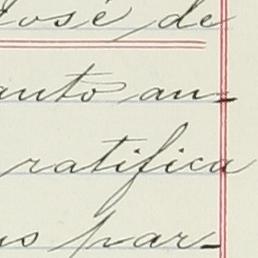 José de
anto an=
ratifica
us par-